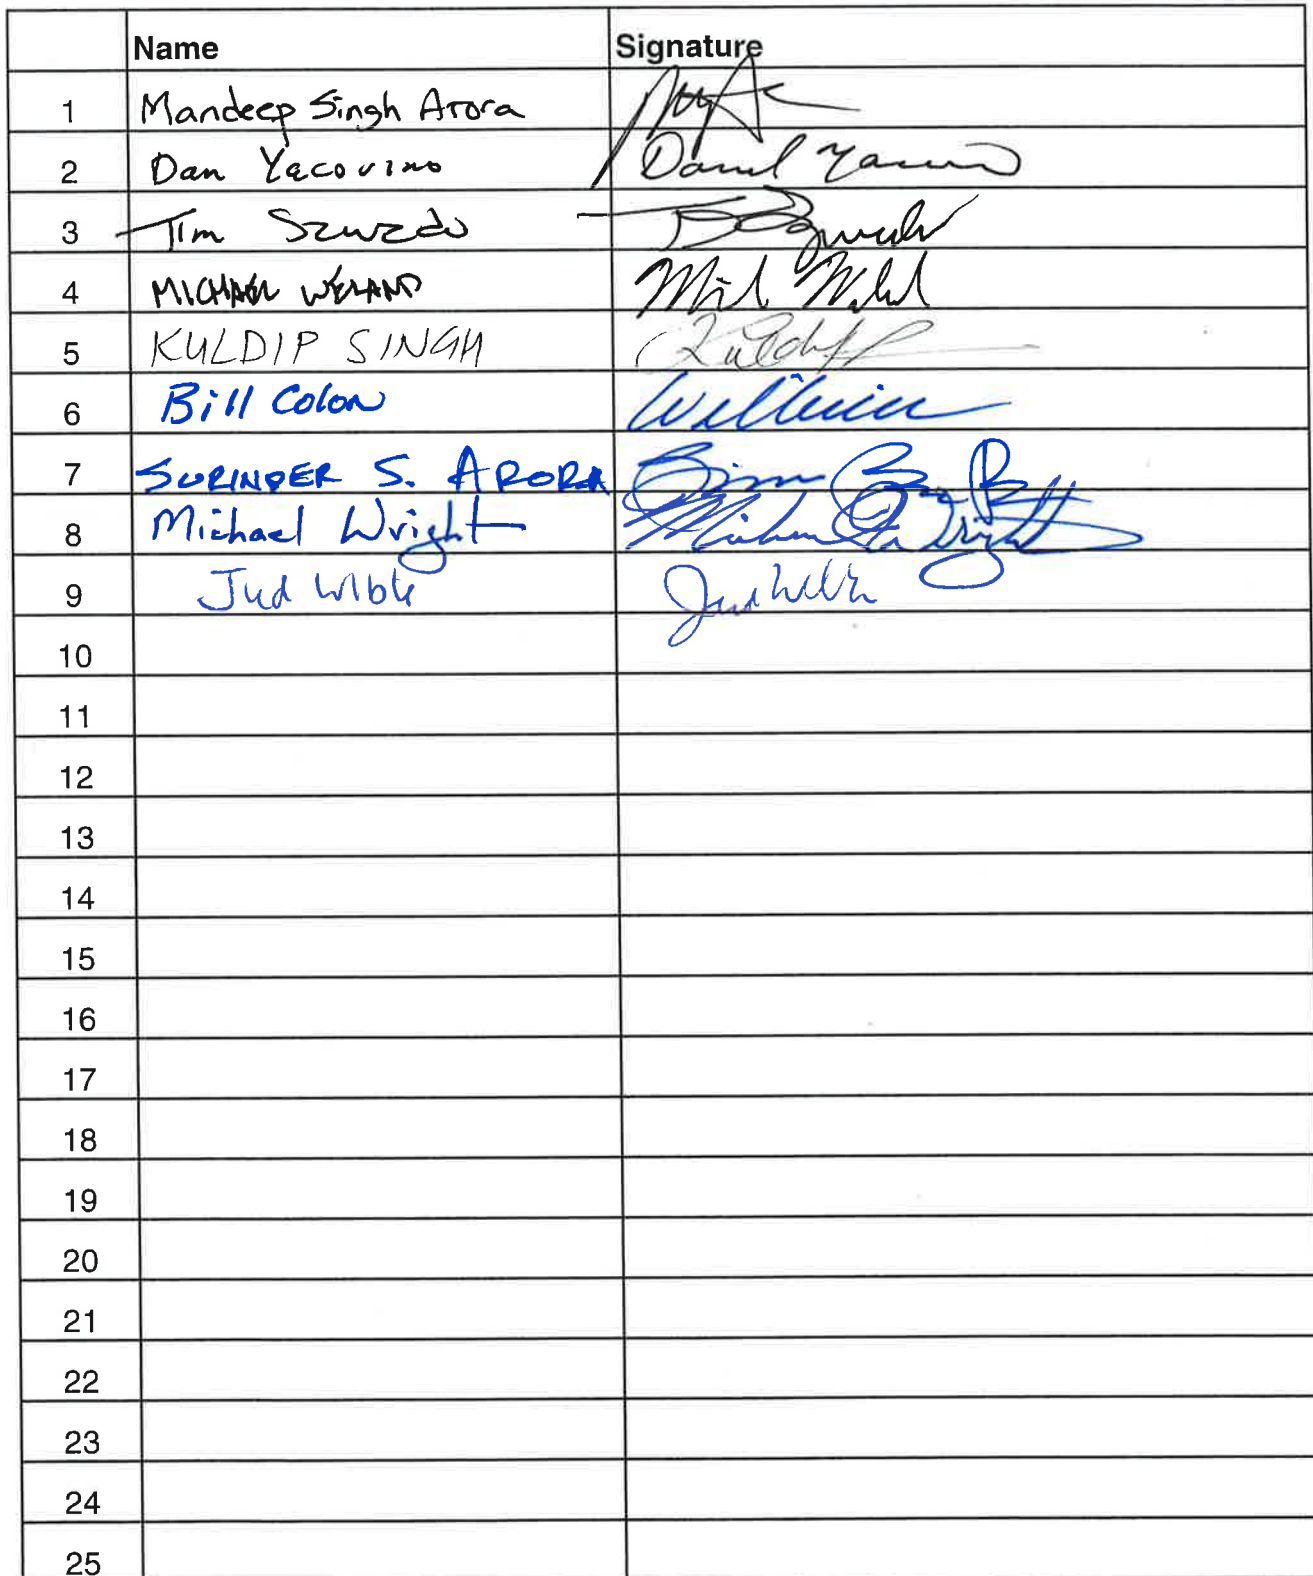 Name Signature
1 Mandeep Singh Arora
2 Dan Yacovino Daniel
3 Tim
4 MICHAEL WELAND
5 KULDIP SINGH Kuldip
6 Bill Colon
7 SURINDER S. ARORA
8 Michael Wright Michael Wright
9 Jud Wible Jud Wible
10
11
12
13
14
15
16
17
18
19
20
21
22
23
24
25